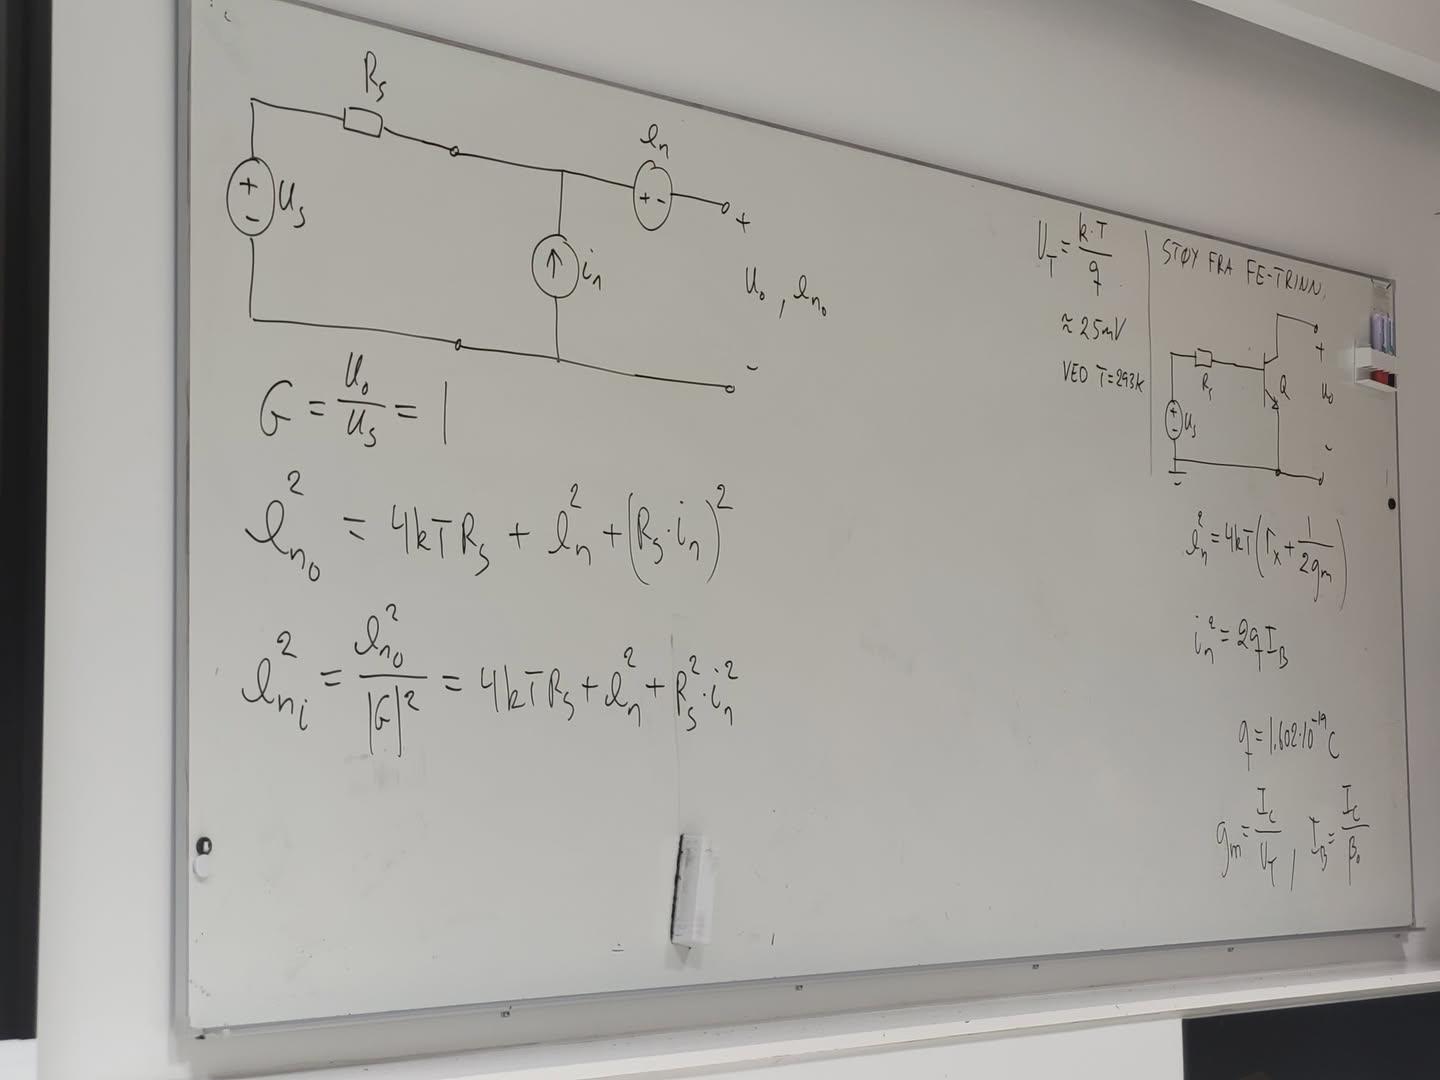 R_s
e_n
+
-
U_s
i_n
+ -
+
U_o , e_no
-
G = U_o / U_s = 1
e_no² = 4kTR_s + e_n² + (R_s · i_n)²
e_ni² = e_no² / |G|² = 4kTR_s + e_n² + R_s² · i_n²
U_T = k·T / q
≈ 25mV
VED T=293K
STØY FRA FE-TRINN,
R_s
Q
+
U_o
-
+
-
U_s
e_n² = 4kT(r_x + 1 / 2g_m)
i_n² = 2qI_B
q = 1.602·10⁻¹⁹ C
g_m = I_C / U_T , I_B = I_C / β_0